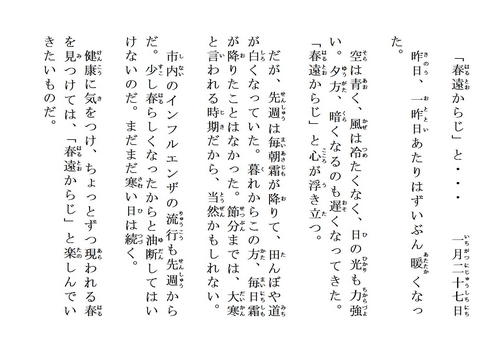 「春遠からじ」と・・・　　一月二十七日
昨日、一昨日あたりはずいぶん暖くなっ
た。
空は青く、風は冷たくなく、日の光も力強
い。夕方、暗くなるのも遅くなってきた。
「春遠からじ」と心が浮き立つ。
だが、先週は毎朝霜が降りて、田んぼや道
が白くなっていた。暮れからこの方、毎日霜
が降りたことはなかった。節分までは、大寒
と言われる時期だから、当然かもしれない。
市内のインフルエンザの流行も先週から
だ。少し春らしくなったからと油断してはい
けないのだ。まだまだ寒い日は続く。
健康に気をつけ、ちょっとずつ現われる春
を見つけては、「春遠からじ」と楽しんでい
きたいものだ。